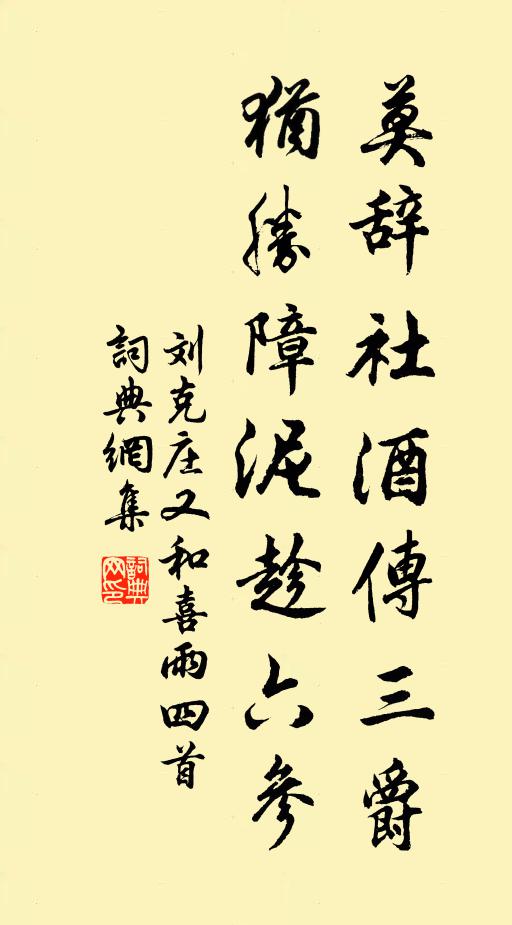 莫辞社酒傳三爵
猶勝障泥趁六參
刘克庄又和喜雨四首
詞典網集
詞典网印